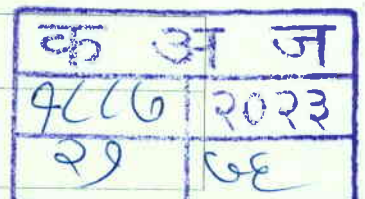 क अ ज
१८८७ २०२३
२१ ७६